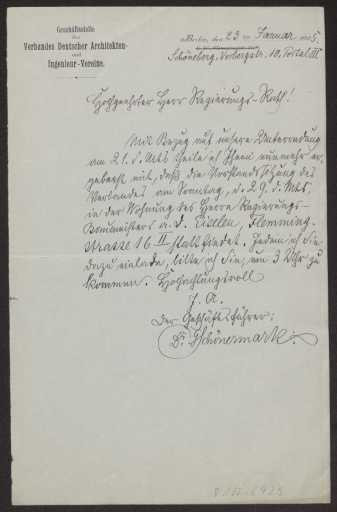 Geschäftsstelle
des
Verbandes Deutscher Architekten-
und
Ingenieur-Vereine.
Berlin, den 23 ten Januar 5.
Schöneberg, Vorbergstr. 10, Portal III
Hochgeehrter Herr Regierungs-Rath!
Mit Bezug auf unsere Unterredung
am 21. d. Mts theile ich Ihnen nunmehr er-
gebenst mit, daß die Vorstands-Sitzung des
Verbandes am Sonntag, d. 29. d. Mts.
in der Wohnung des Herrn Regierungs-
Baumeisters a. D. Eiselen, Flemming-
strasse 16 II stattfindet. Indem ich Sie
dazu einlade, bitte ich Sie, um 3 Uhr zu
kommen. Hochachtungsvoll
J. A.
Der Geschäftsführer:
Dr. Schönermark.